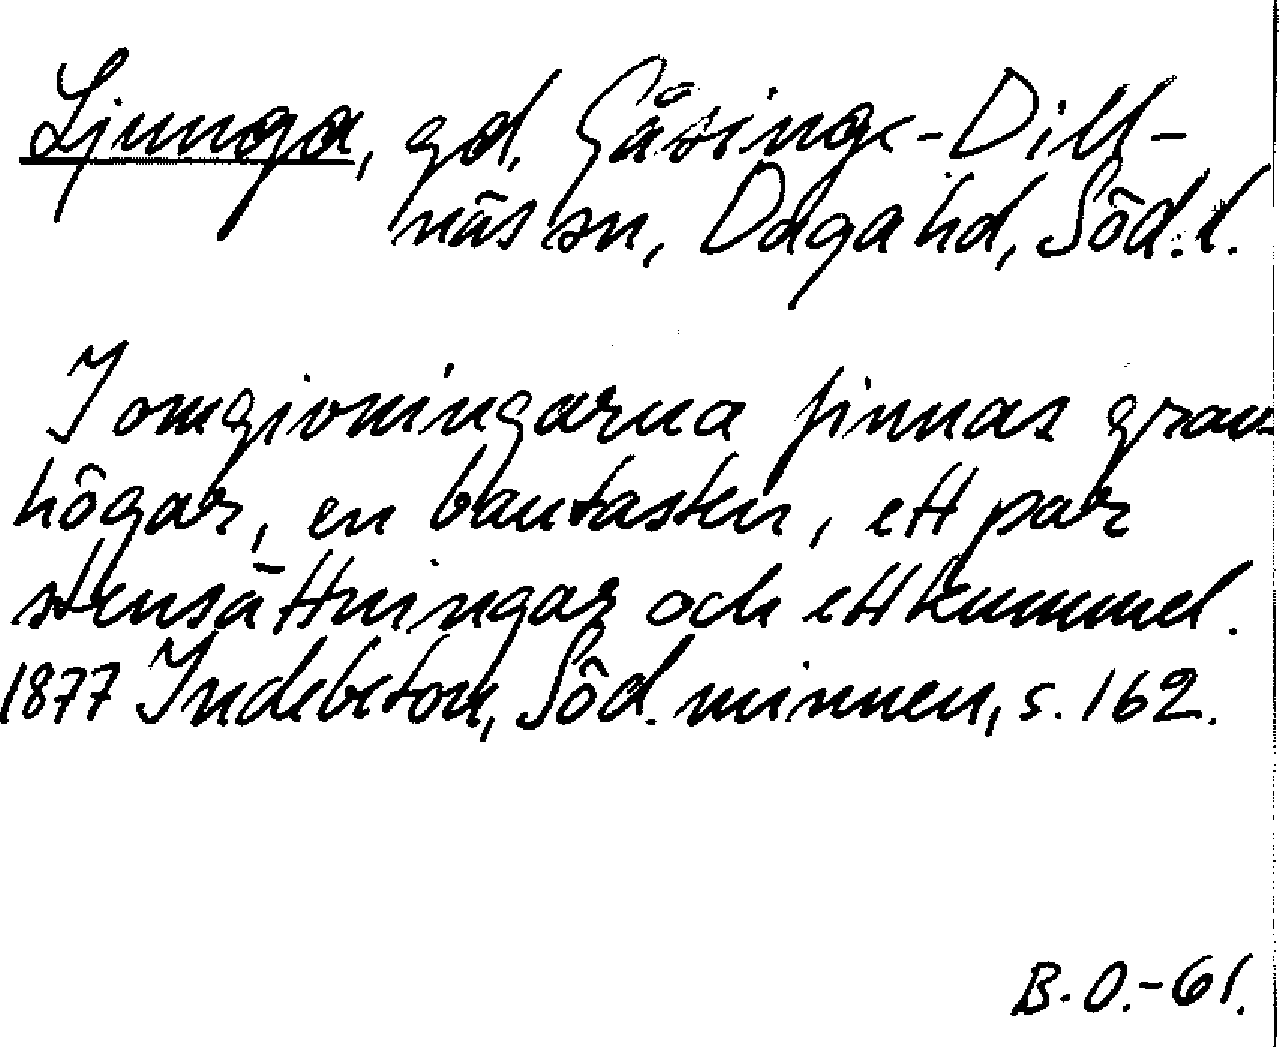 Ljunga, gd, Gåsinge-Dill-
näs sn, Daga hd, Söd. l.
I omgivningarna finnas grav-
högar, en bautasten, ett par
stensättningar och ett kummel.
1877 Indebetou, Söd. minnen, s. 162.
B. O. -61.